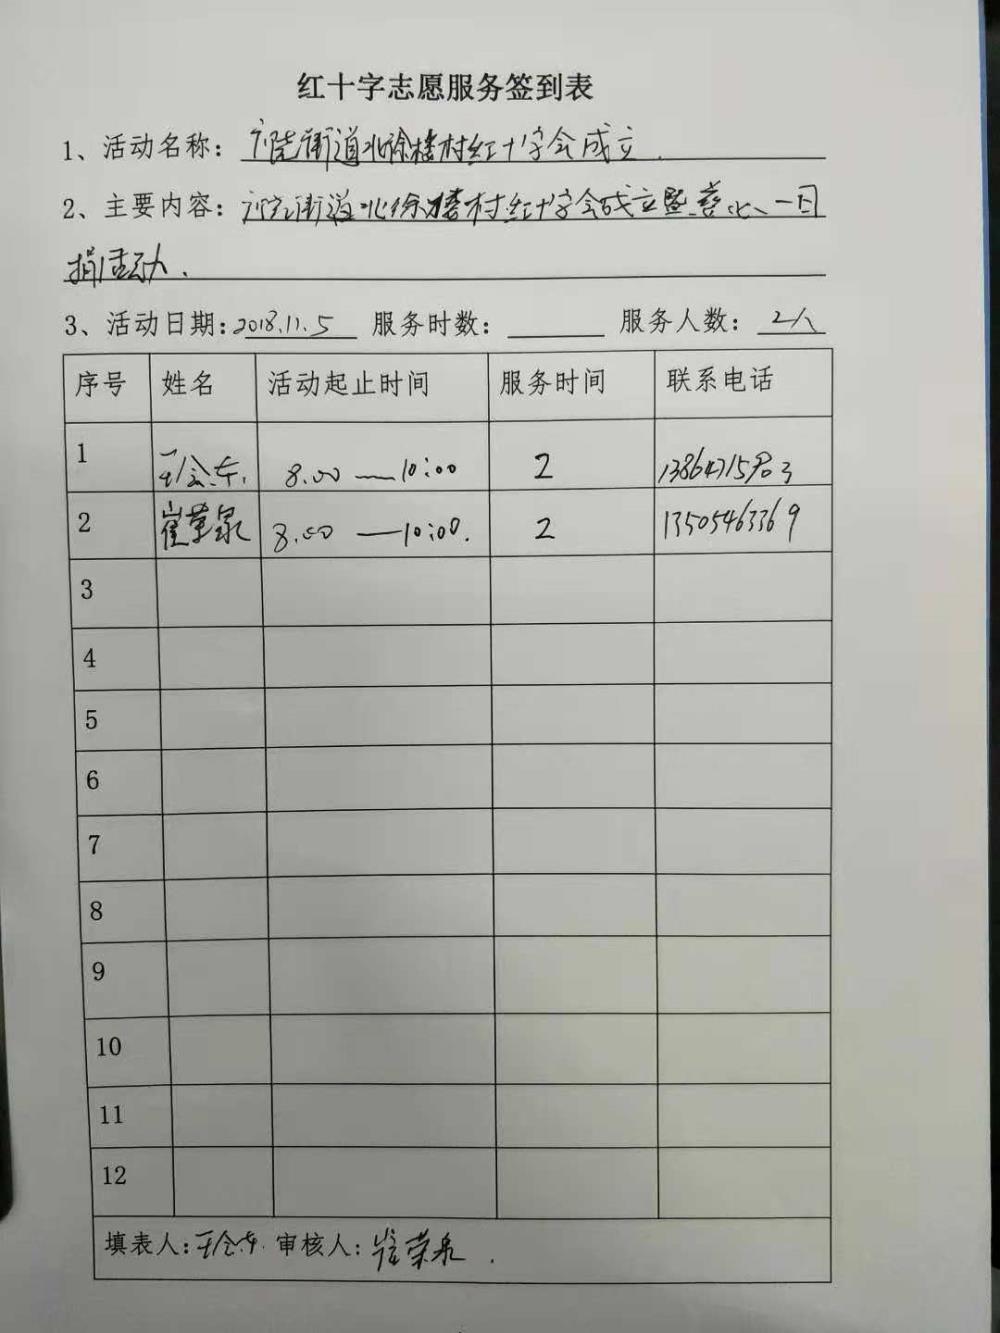 红十字志愿服务签到表
1、活动名称: 街道北徐楼村红十字会成立.
2、主要内容: 街道北徐楼村红十字会成立暨慈心一日
捐活动.
3、活动日期:2018.11.5 服务时数: 服务人数: 2人
序号 姓名 活动起止时间 服务时间 联系电话
1 王会东. 8.00—10:00 2
2 崔荣泉 8.00—10:00. 2 13505463369
3
4
5
6
7
8
9
10
11
12
填表人:王会东. 审核人:崔荣泉.